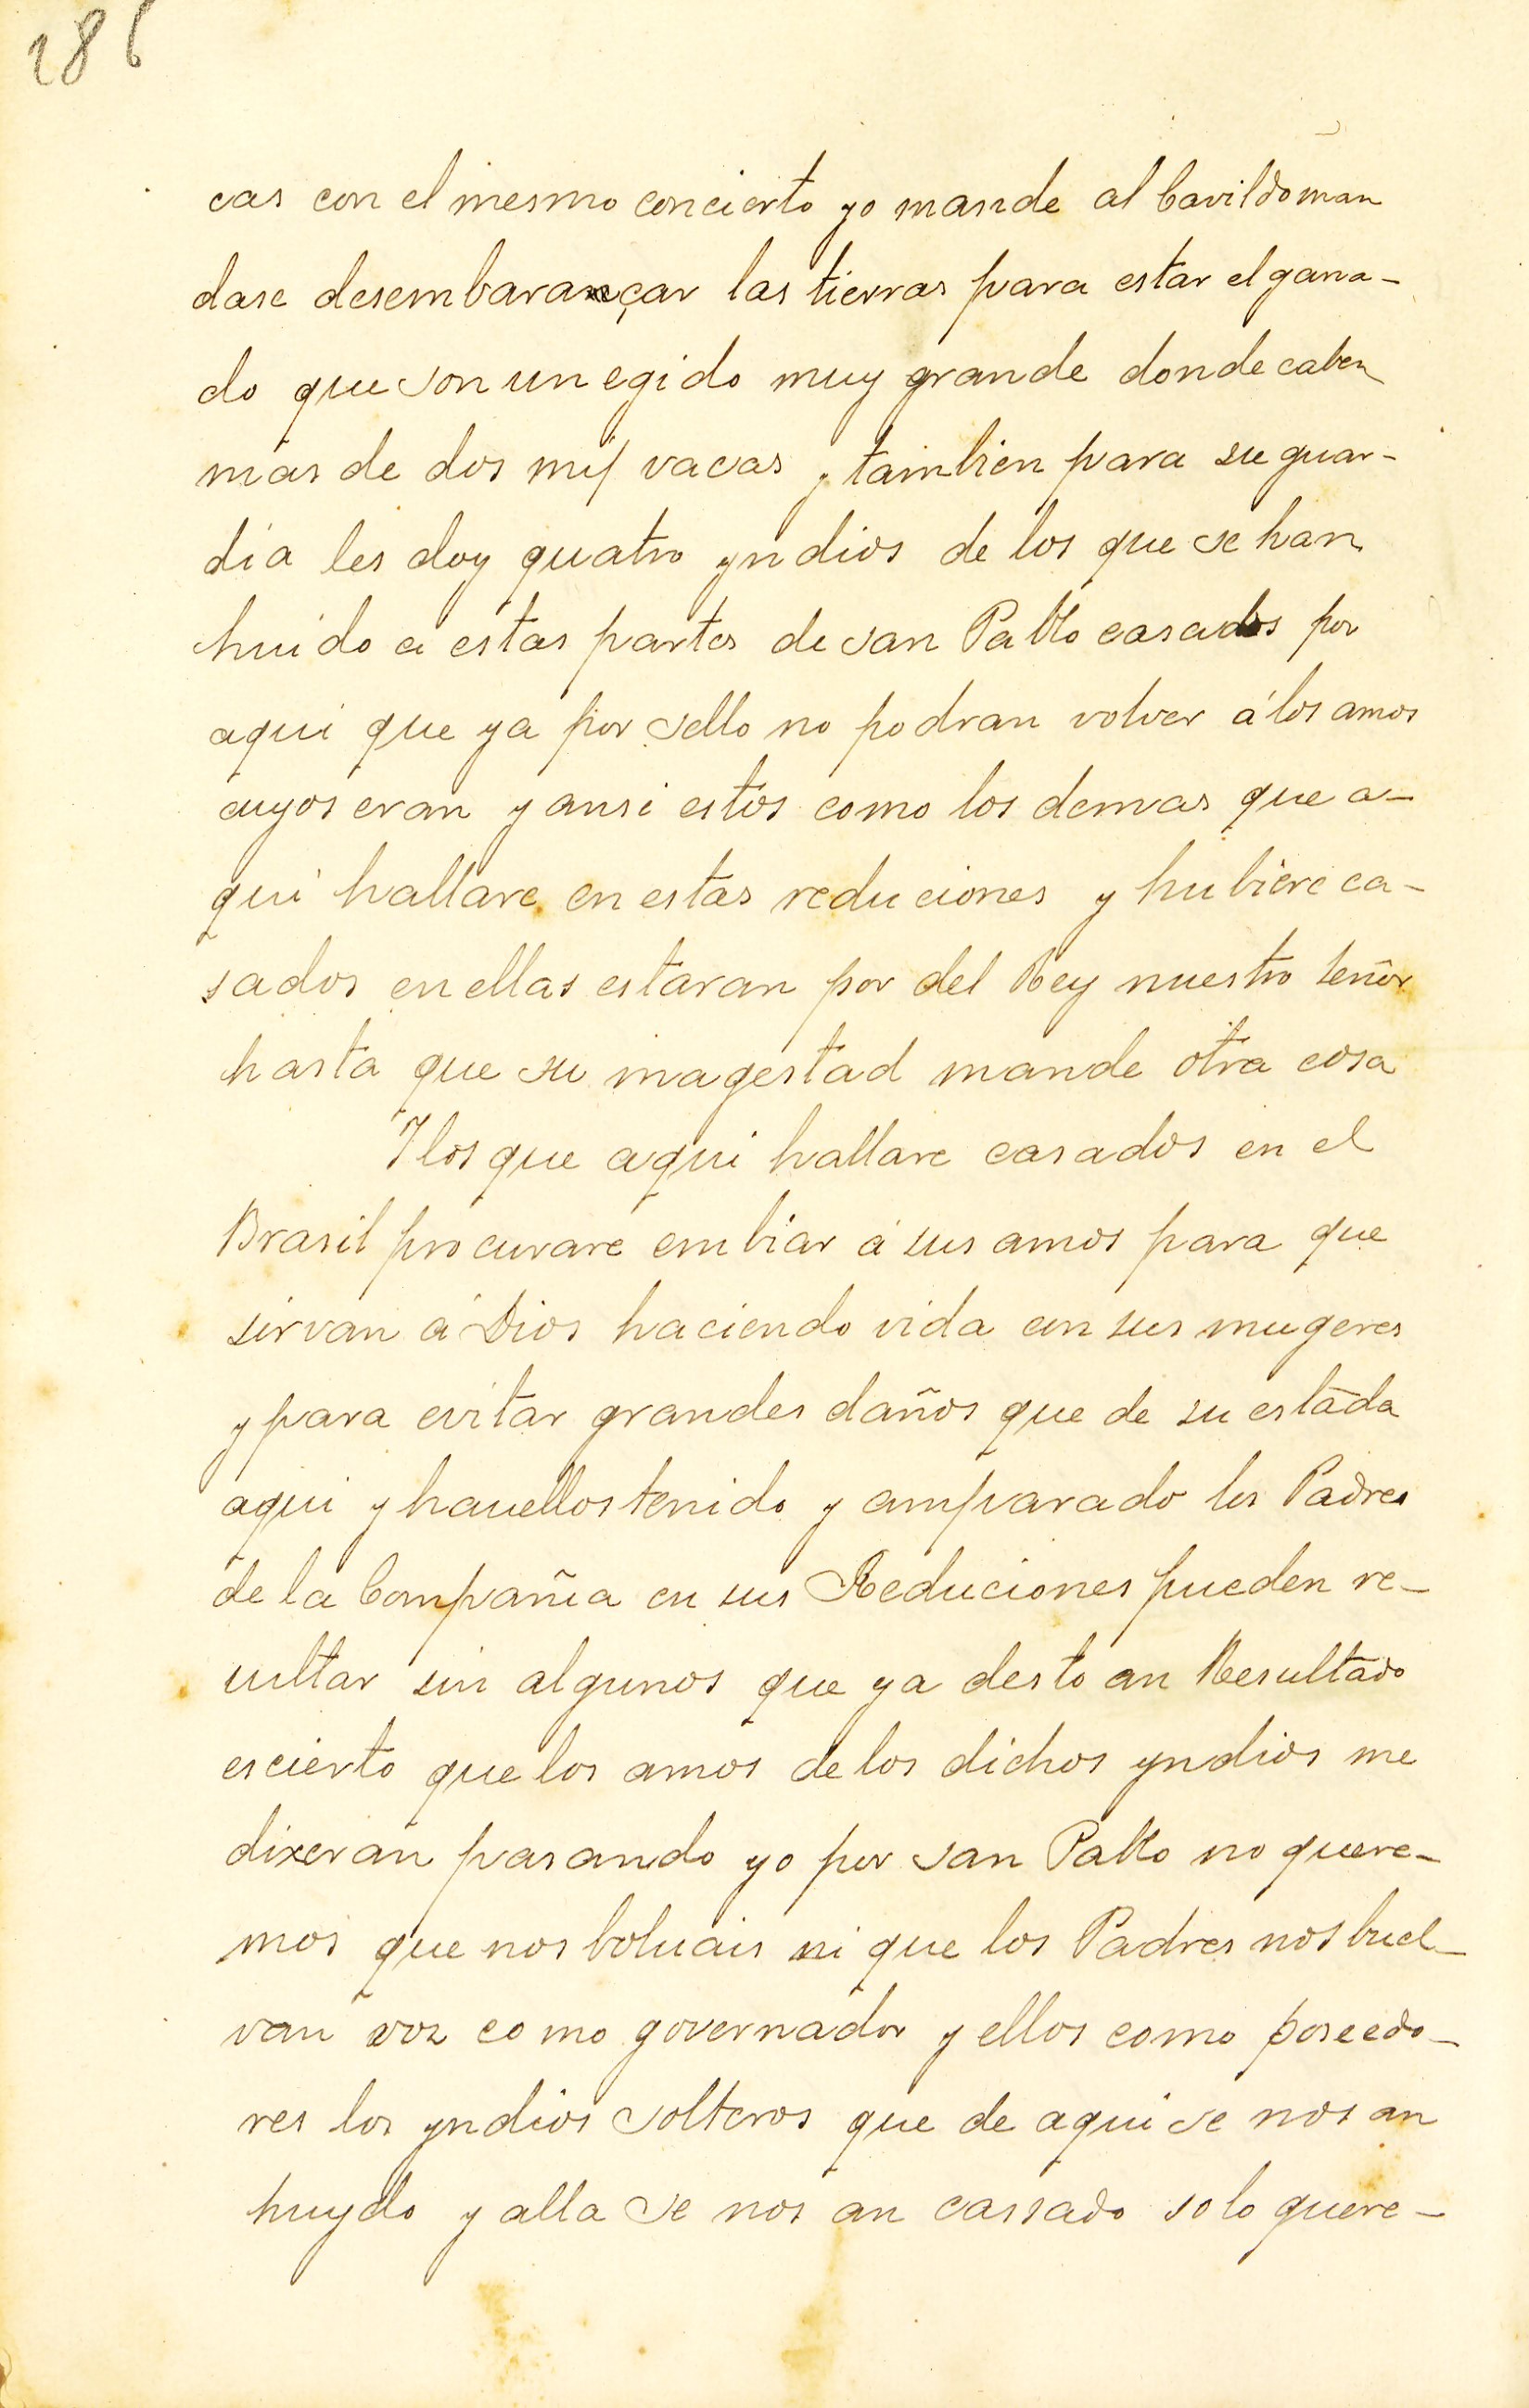 286
cas con el mesmo concierto yo mande al Cavildo man
dase desembarançar las tierras para estar el gana-
do que son un egido muy grande donde caben
mas de dos mil vacas y tambien para su guar-
dia les doy quatro yndios de los que se han
huido a estas partes de san Pablo casados por
aqui que ya por sello no podran volver á los amos
cuyos eran y ansi estos como los demas que a-
qui hallare en estas reduciones y hubiere ca-
sados en ellas estaran por del Rey nuestro señor
hasta que su magestad mande otra cosa
Y los que aqui hallare casados en el
Brasil procurare embiar á sus amos para que
sirvan á Dios haciendo vida con sus mugeres
y para evitar grandes daños que de su estada
aqui y havellos tenido y amparado los Padres
de la Compañia en sus Reduciones pueden re-
sultar sin algunos que ya desto an Resultado
es cierto que los amos de los dichos yndios me
dixeran pasando yo por san Pablo no quere-
mos que nos boluais ni que los Padres nos buel-
van vos como governador y ellos como poseedo-
res los yndios solteros que de aqui se nos an
huydo y alla se nos an cassado solo quere-